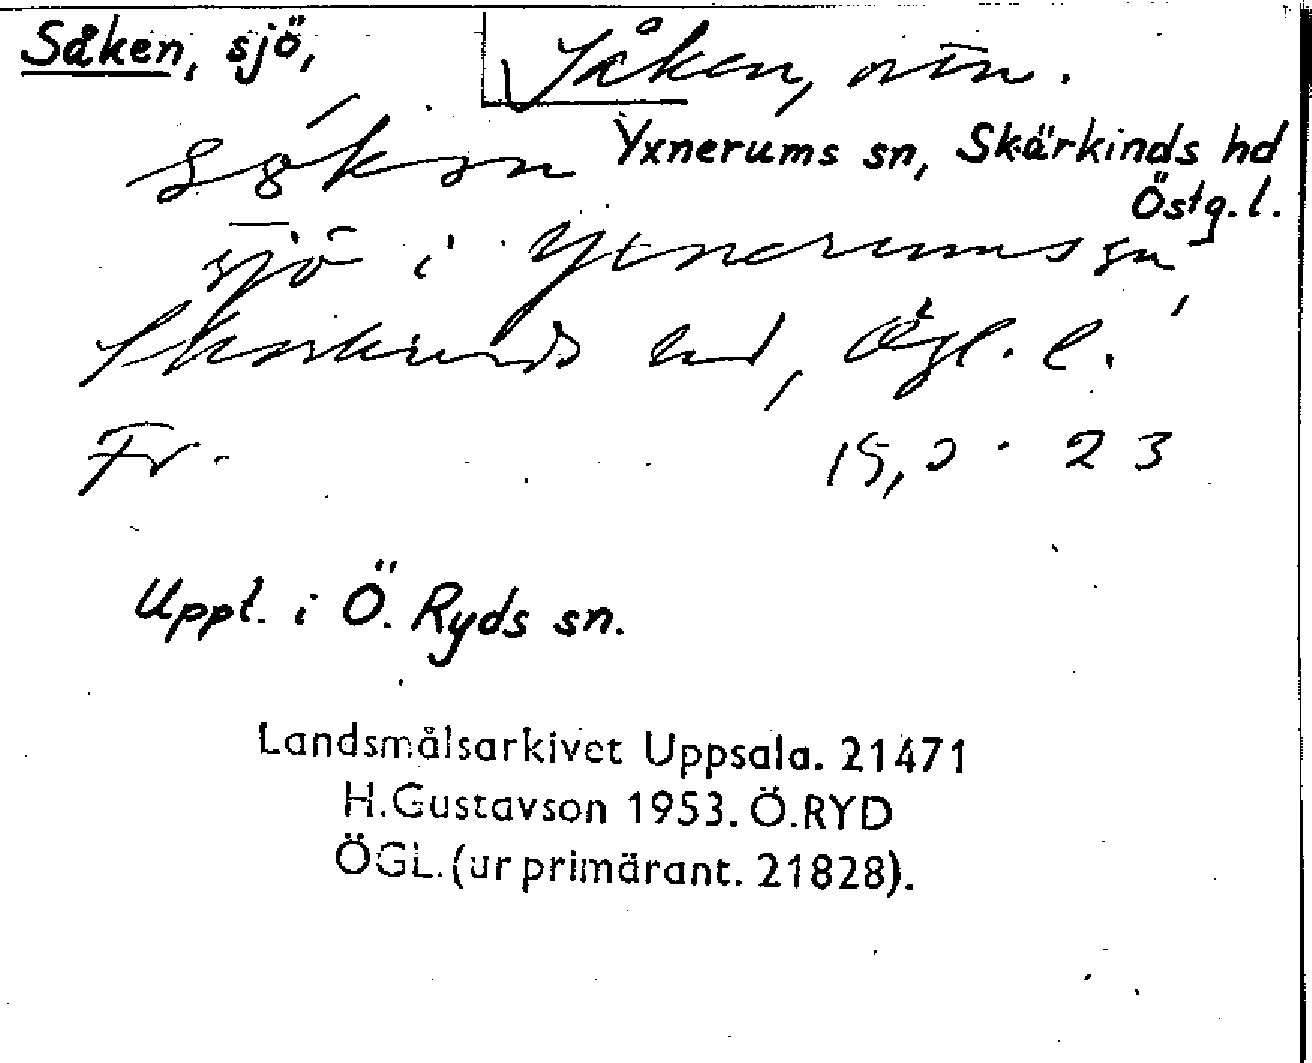 Såken, sjö,
Såken, ntn.
Yxnerums sn, Skärkinds hd
Östg. l.
sjö i Yxnerums sn,
Skärkinds hd, Ögl. l.
Fr.
Uppt. i Ö. Ryds sn.
Landsmålsarkivet Uppsala. 21471
H. Gustavson 1953. Ö. RYD
ÖGL. (ur primärant. 21828).